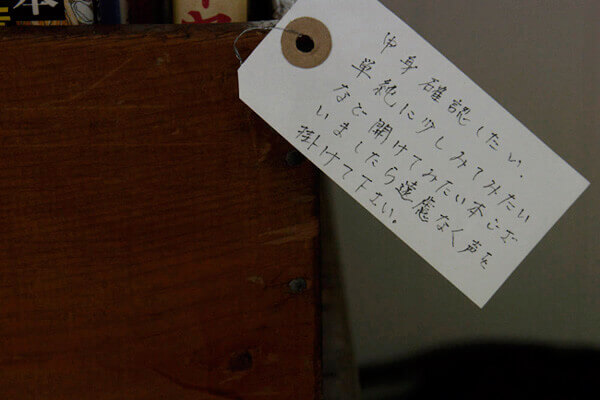 本
中身確認したい.
単純に少しみてみたい
など開けてみたい本ござ
いましたら遠慮なく声を
掛けて下さい。